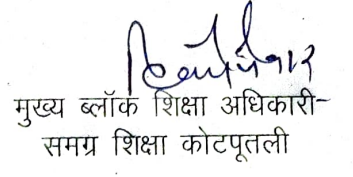 मुख्य ब्लॉक शिक्षा अधिकारी-
समग्र शिक्षा कोटपूतली